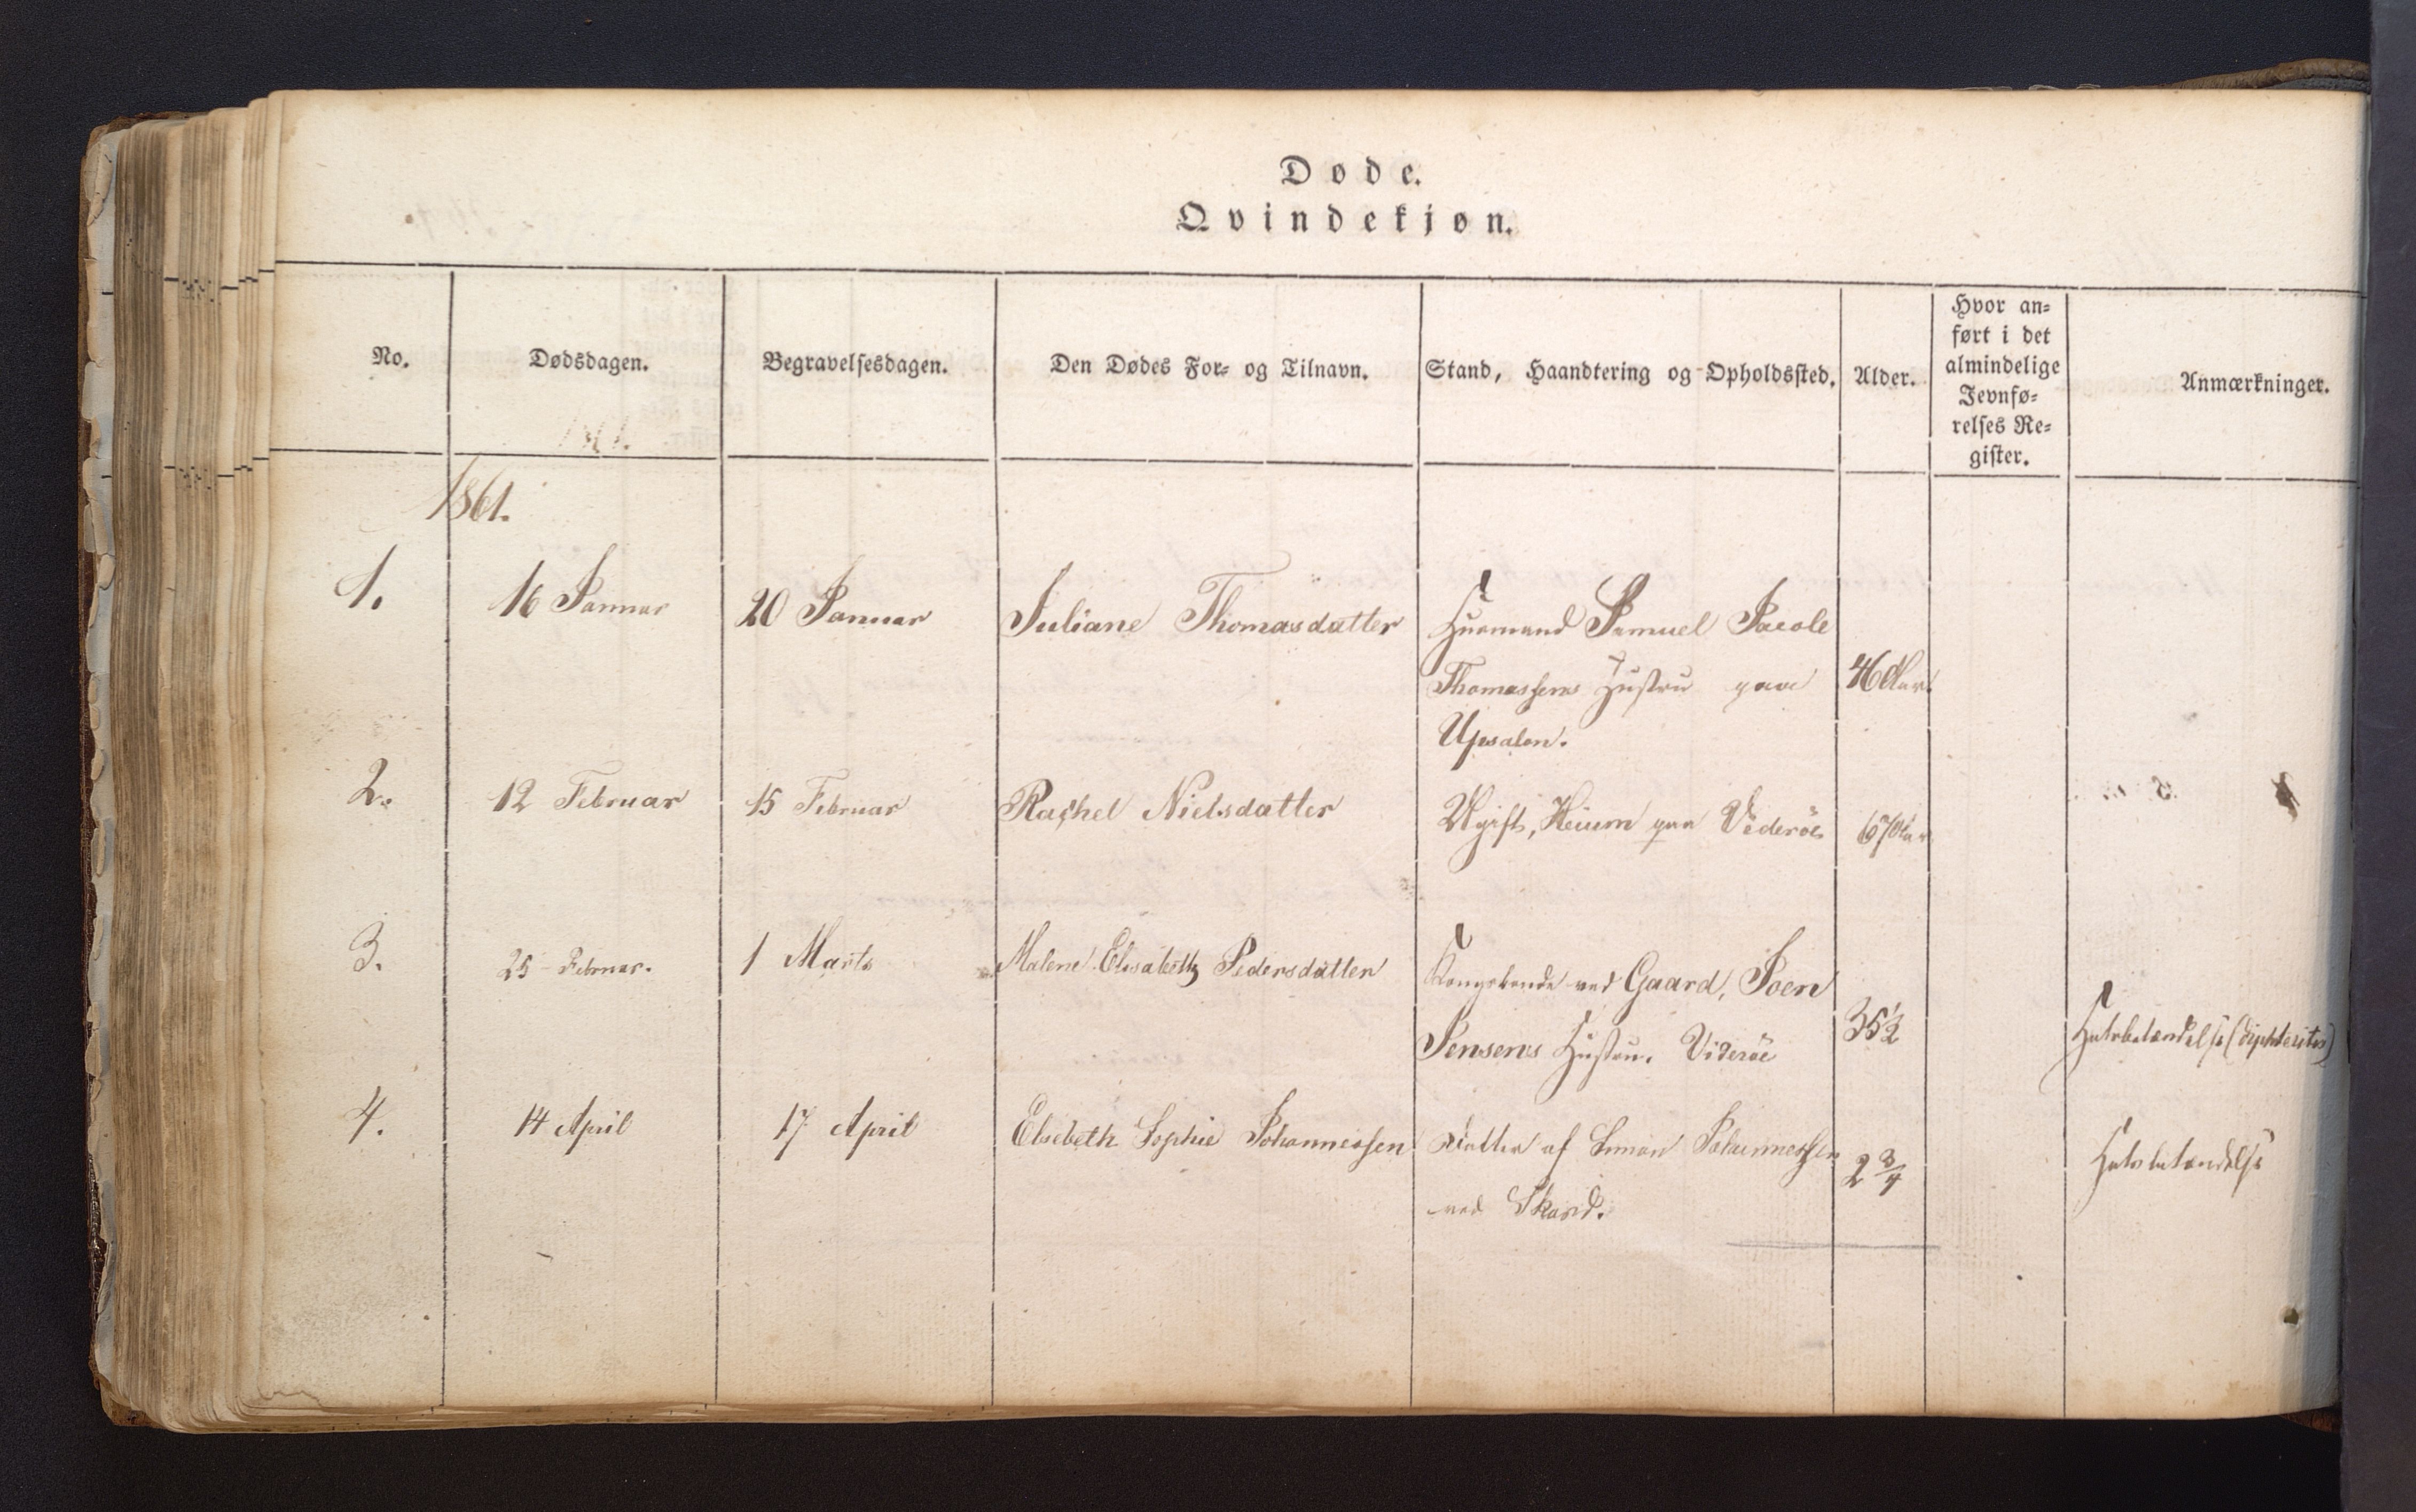 Døde.
Qvindekjøn.
No.
Dødsdagen.
Begravelsesdagen.
Den Dødes For- og Tilnavn.
Stand, Haandtering og Opholdssted.
Alder.
Hvor an-
ført i det
almindelige
Jevnfø-
relses Re-
gister.
Anmærkninger.
1861.
1861.
1.
16 Januar
20 Januar
Juliane Thomasdatter
Huusmand Samuel Jacob
Thomassens Hustru paa
Upsalen.
46 Aar.
2.
12 Februar
15 Februar
Rachel Nielsdatter
Ugift, Heium paa Viderøe
67 Aar
3.
25 Februar.
1 Marts
Malene Elisabeth Pedersdatter
Kongsbonde ved Gaard, Joen
Jensens Hustru. Viderøe
35½
Halsbetændelse (Diphteritis)
4.
14 April
17 April
Elsebeth Sophie Johannessen
Datter af Simon Johannessen
ved Skard.
2 3/4
Halsbetændelse